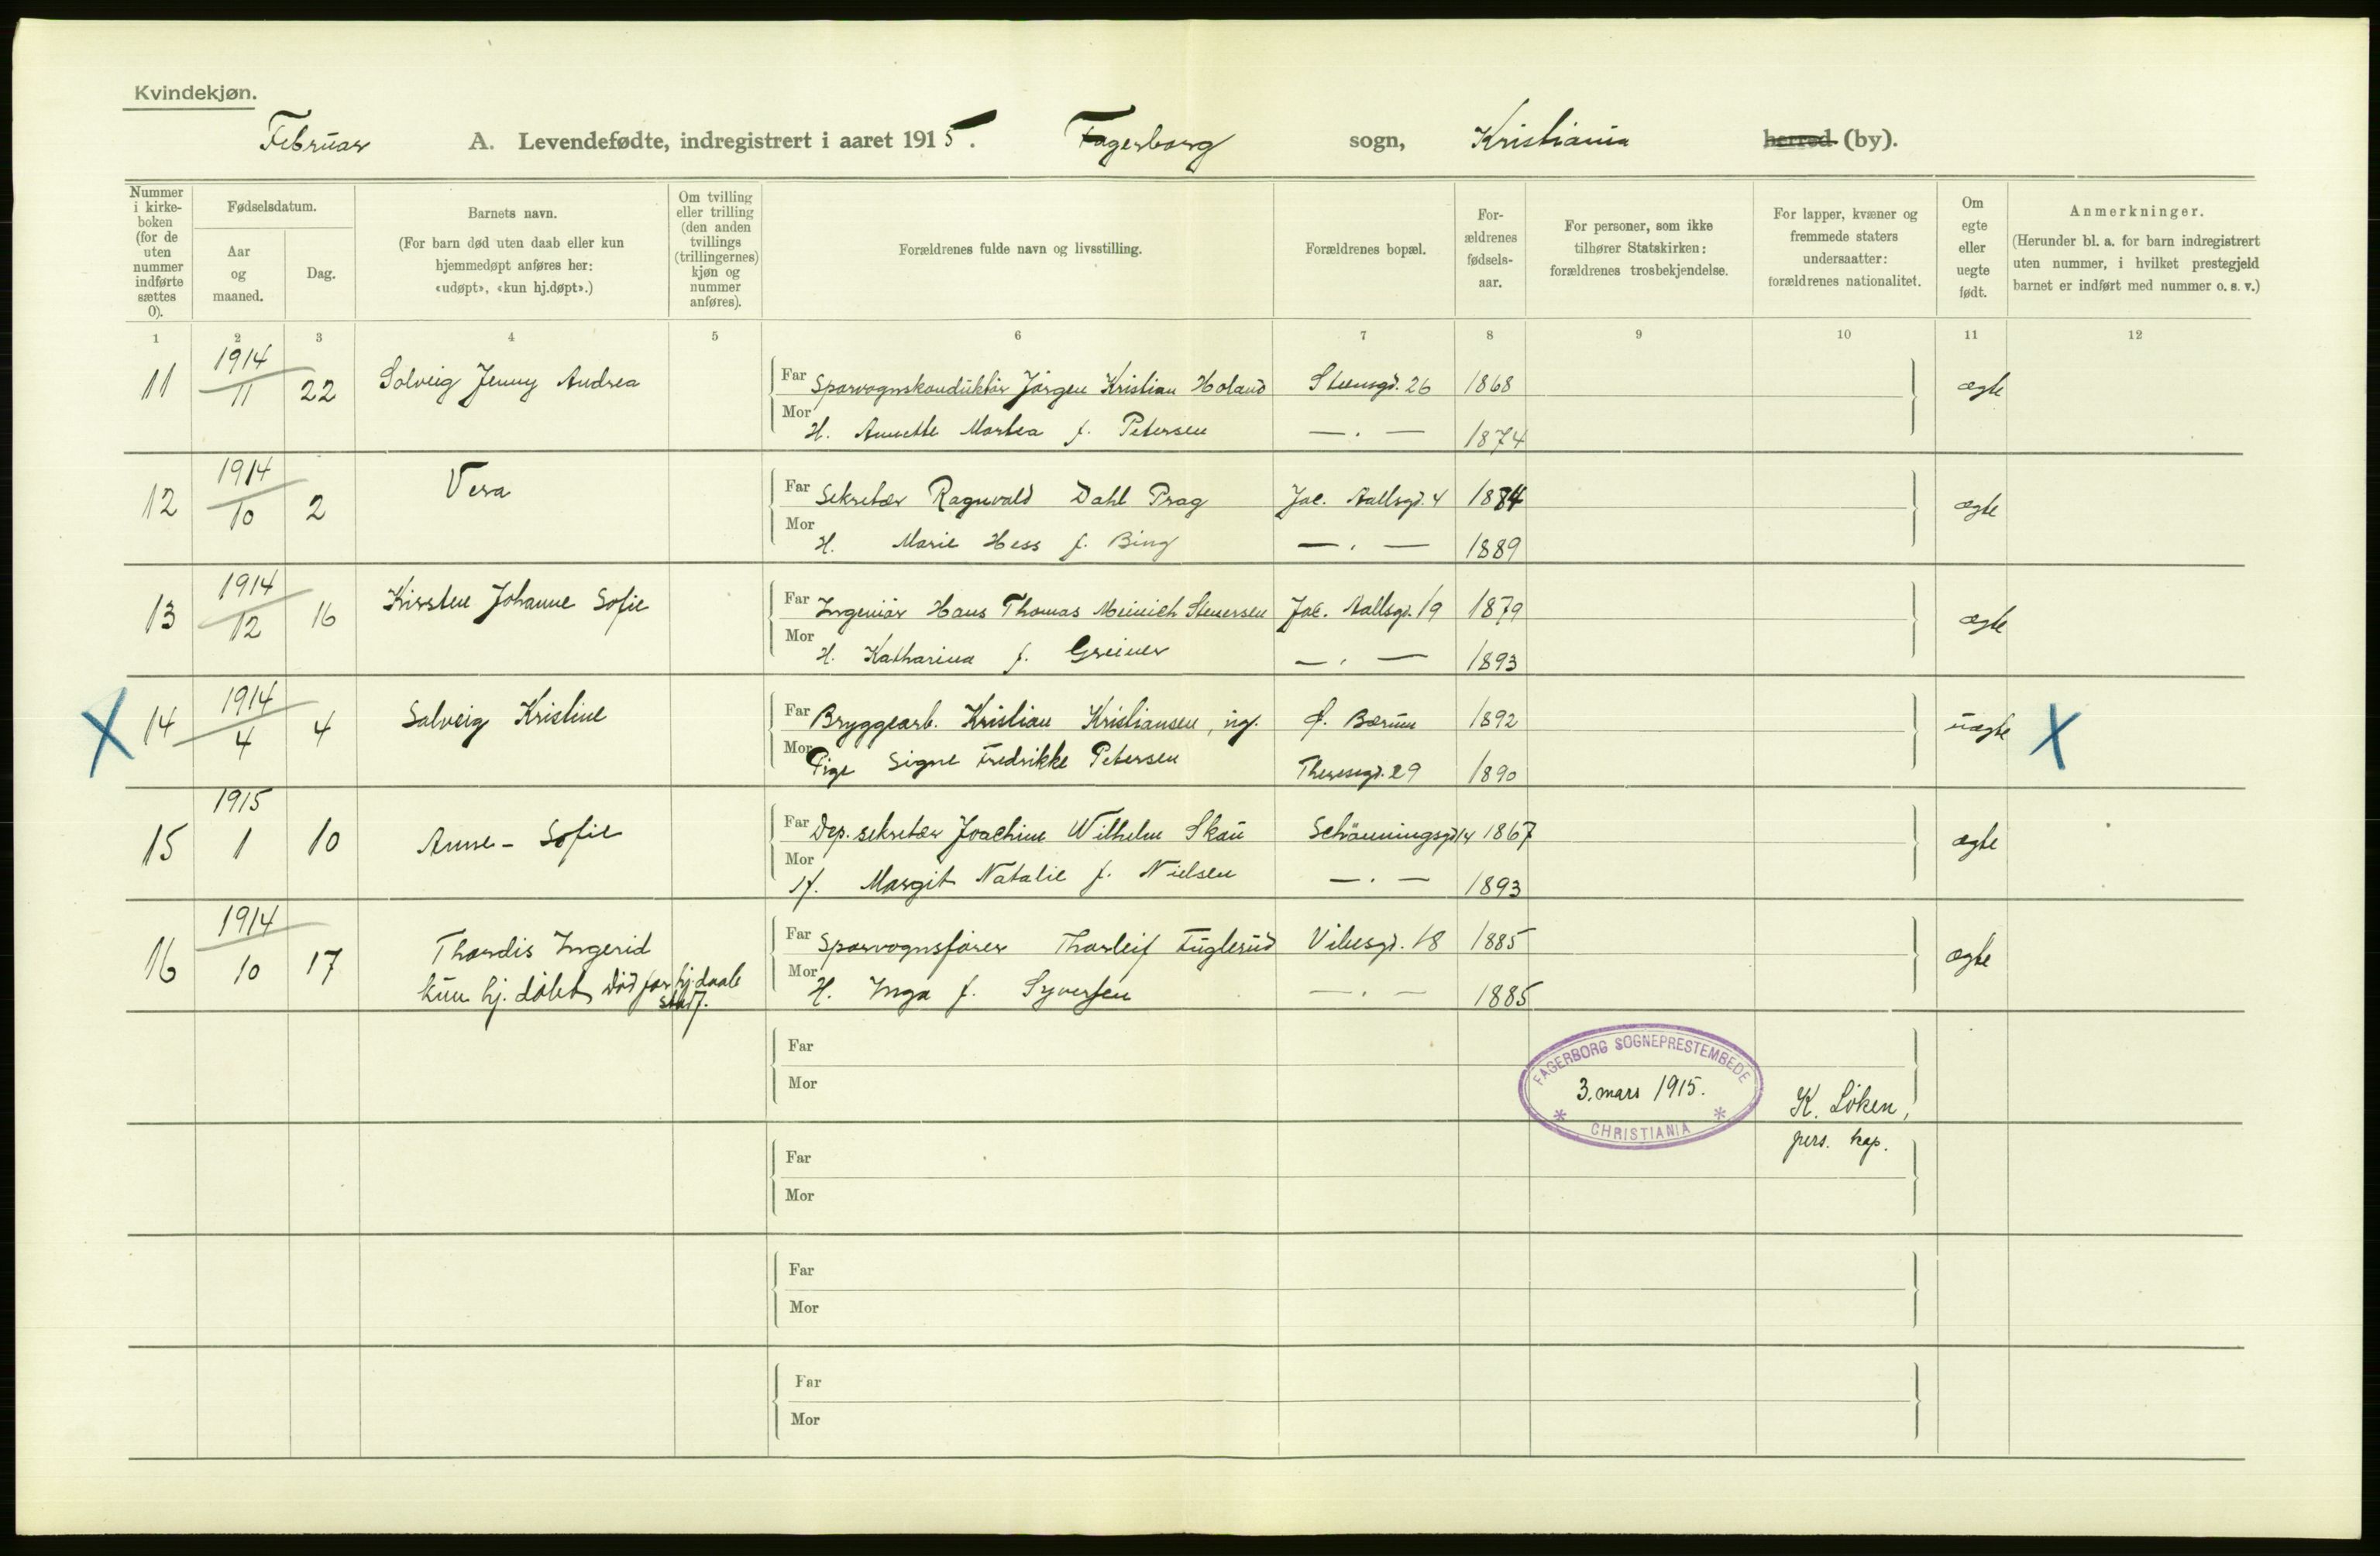 Kvindekjøn.
Februar A. Levendefødte, indregistrert i aaret 1915. Fagerborg sogn, Kristiania herred (by).
Nummer i kirke-boken (for de uten nummer indførte sættes 0).
Fødselsdatum.
Aar og maaned.
Dag.
Barnets navn.
(For barn død uten daab eller kun hjemmedøpt anføres her: «udøpt», «kun hj.døpt».)
Om tvilling eller trilling (den anden tvillings (trillingernes) kjøn og nummer anføres).
Forældrenes fulde navn og livsstilling.
Forældrenes bopæl.
For-ældrenes fødsels-aar.
For personer, som ikke tilhører Statskirken: forældrenes trosbekjendelse.
For lapper, kvæner og fremmede staters undersaatter: forældrenes nationalitet.
Om egte eller uegte født.
Anmerkninger.
(Herunder bl. a. for barn indregistrert uten nummer, i hvilket prestegjeld barnet er indført med nummer o. s. v.)
1 2 3 4 5 6 7 8 9 10 11 12
11 1914 11 22 Solveig Jenny Andrea Far Sporvognskonduktør Jørgen Kristian Holand Stensgd. 26 1868 ægte
Mor H. Annette Martea f. Petersen — . — 1874
12 1914 10 2 Vera Far Sekretær Ragnvald Dahl Prag Jac. Aallsgd. 4 1884 ægte
Mor H. Marie Hess f. Bing — . — 1889
13 1914 12 16 Kirsten Johanne Sofie Far Ingeniør Hans Thomas Meinich Stenersen Jac. Aallsgd. 19 1879 ægte
Mor H. Katharina f. Greiner — . — 1893
X 14 1914 4 4 Solveig Kristine Far Bryggearb. Kristian Kristiansen, ug. f. Bærum 1892 uægte X
Mor Pige Signe Fredrikke Petersen Theresegd. 29 1890
15 1915 1 10 Anne - Sofie Far Dep. sekretær Joachim Wilhelm Skau Schönningsgd 14 1867 ægte
Mor H. Margit Natalie f. Nielsen — . — 1893
16 1914 10 17 Thordis Ingerid Far Sporvognsfører Thorleif Fuglerud Vibesgd. 18 1885 ægte
kun hj. døbt, død før hj. daabs stadf. Mor H. Inga f. Syversen — . — 1885
Far
Mor
FAGERBORG SOGNEPRESTEMBEDE
3. mars 1915.
* CHRISTIANIA *
K. Löken,
pers. kap.
Far
Mor
Far
Mor
Far
Mor